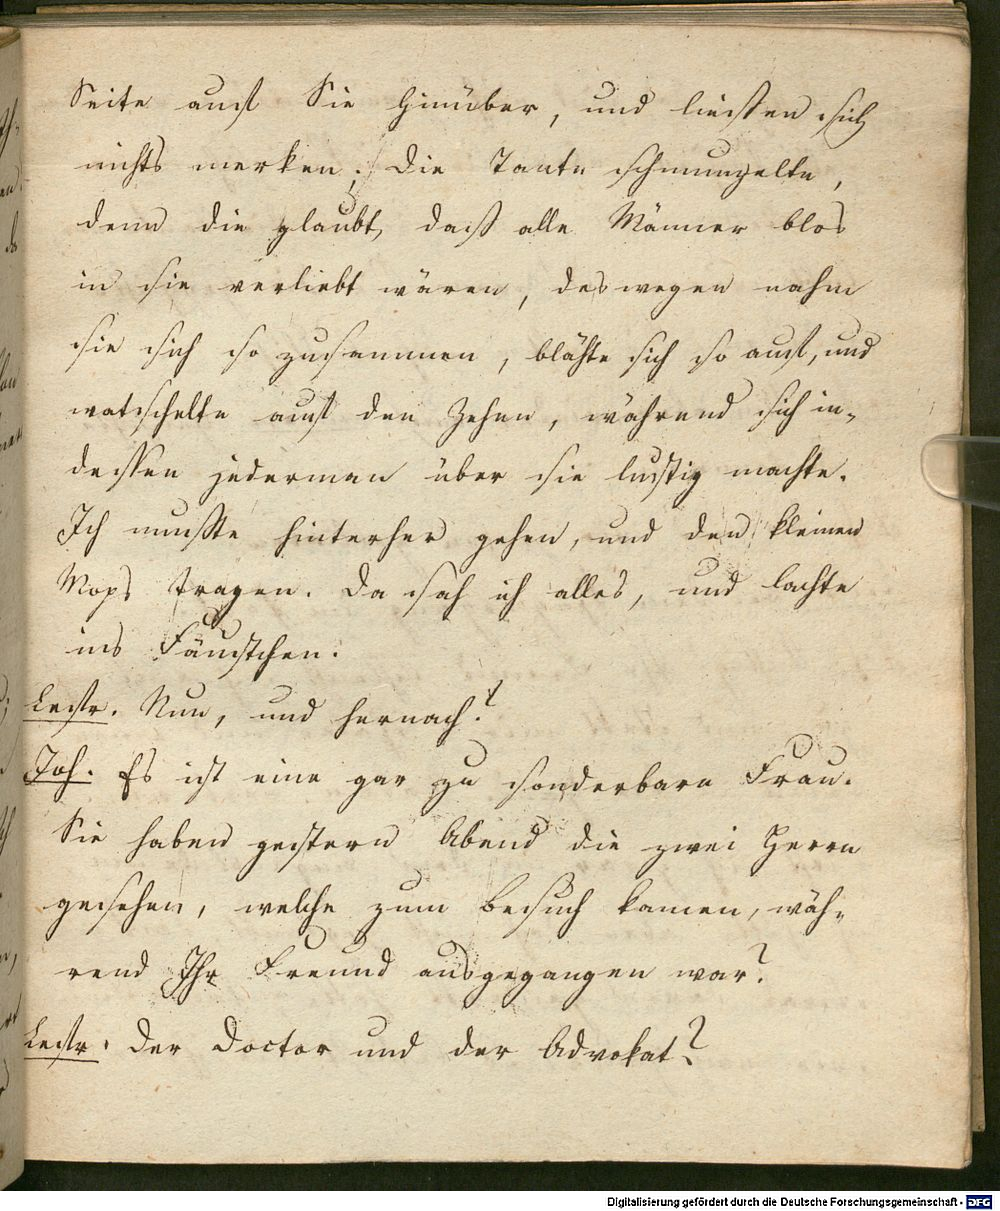 Seite auf Sie hinüber, und liessen sich
nichts merken; die Tante schmunzelte,
denn die glaubt, daß alle Männer blos
in sie verliebt wären, deswegen nahm
sie sich so zusammen, blähte sich so auf, und
watschelte auf den Zehen, während sich in-
dessen jederman über sie lustig machte.
Ich mußte hinterher gehen, und den kleinen
Mops tragen. Da sah ich alles, und lachte
ins Fäustchen.
Nun, und hernach?
Joh. Es ist eine gar zu sonderbare Frau.
Sie haben gestern Abend die zwei Herrn
gesehen, welche zum Besuch kamen, wäh-
rend Ihr Freund ausgegangen war?
Der Doctor und der Advokat?
Digitalisierung gefördert durch die Deutsche Forschungsgemeinschaft - DFG